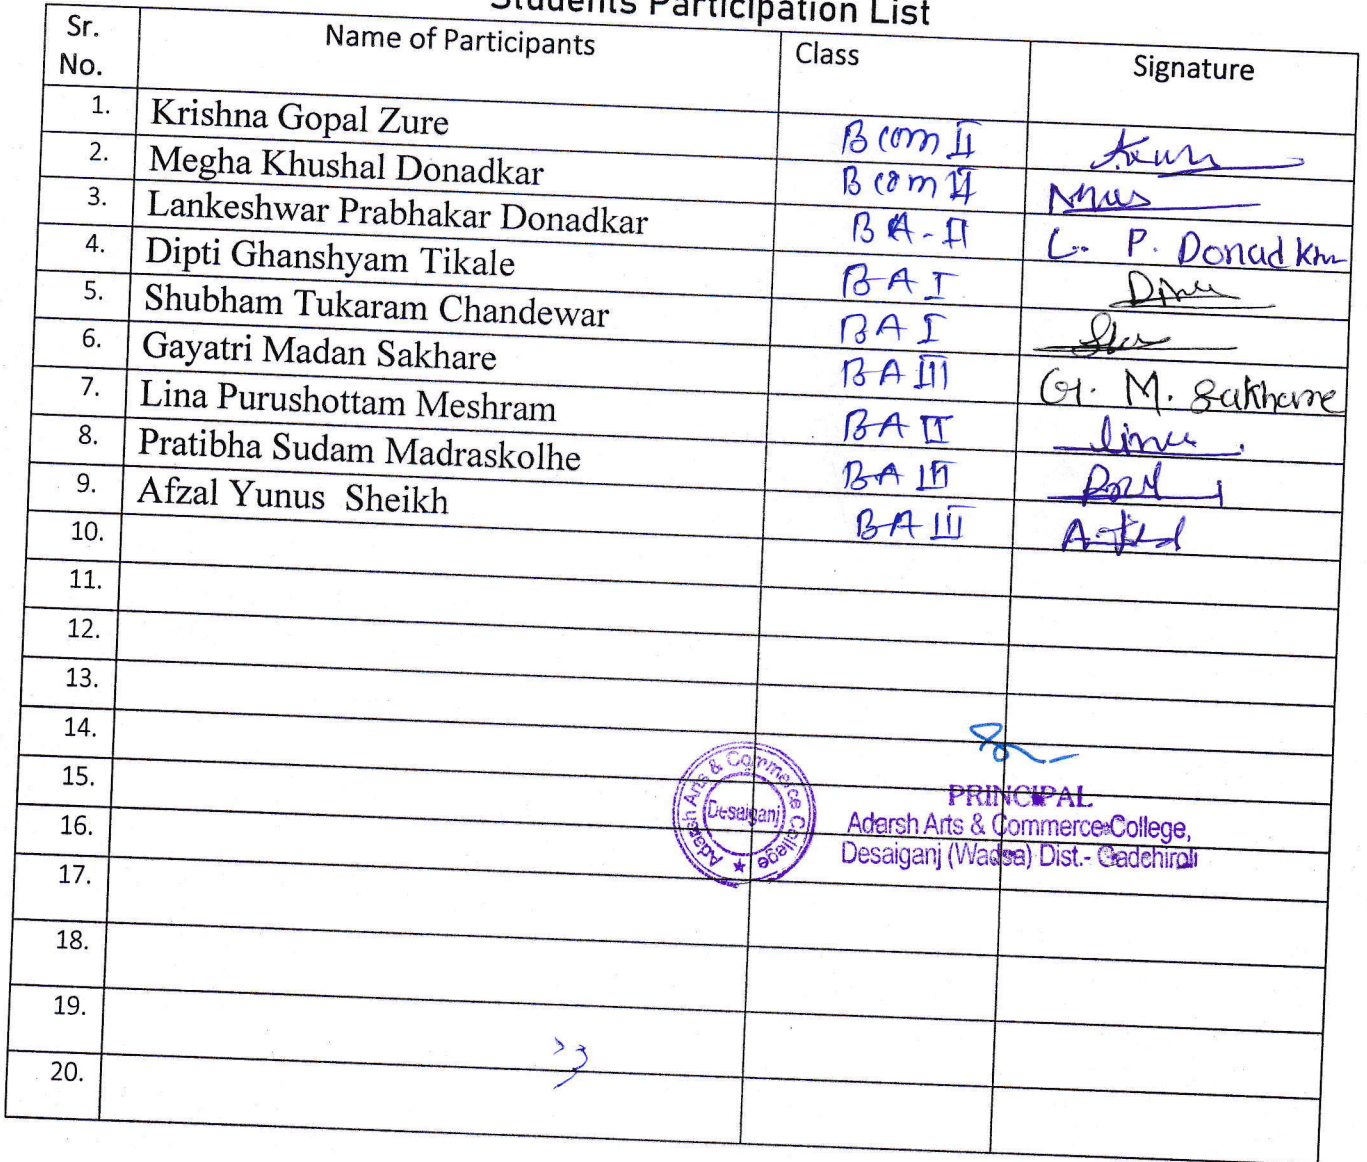 Students Participation List
Sr. No. Name of Participants Class Signature
1. Krishna Gopal Zure B com II
2. Megha Khushal Donadkar B com II
3. Lankeshwar Prabhakar Donadkar BA-II L. P. Donadkar
4. Dipti Ghanshyam Tikale BA I
5. Shubham Tukaram Chandewar BA I
6. Gayatri Madan Sakhare BA III G. M. Sakhare
7. Lina Purushottam Meshram BA II Lina
8. Pratibha Sudam Madraskolhe BA III
9. Afzal Yunus Sheikh BA III
10.
11.
12.
13.
14.
15.
16.
17.
18.
19.
20.
Adarsh Arts & Commerce College
Desaiganj
PRINCIPAL
Adarsh Arts & Commerce College,
Desaiganj (Wadsa) Dist.- Gadchiroli